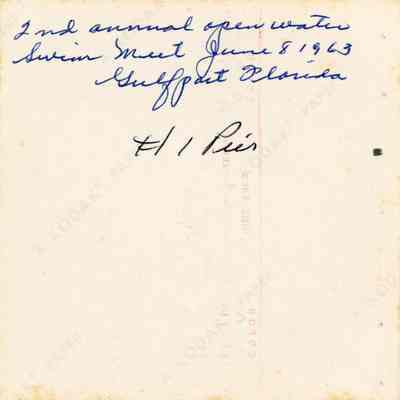 2nd annual open water
Swim Meet June 8 1963
Gulfport Florida
#1 Pier
KODAK